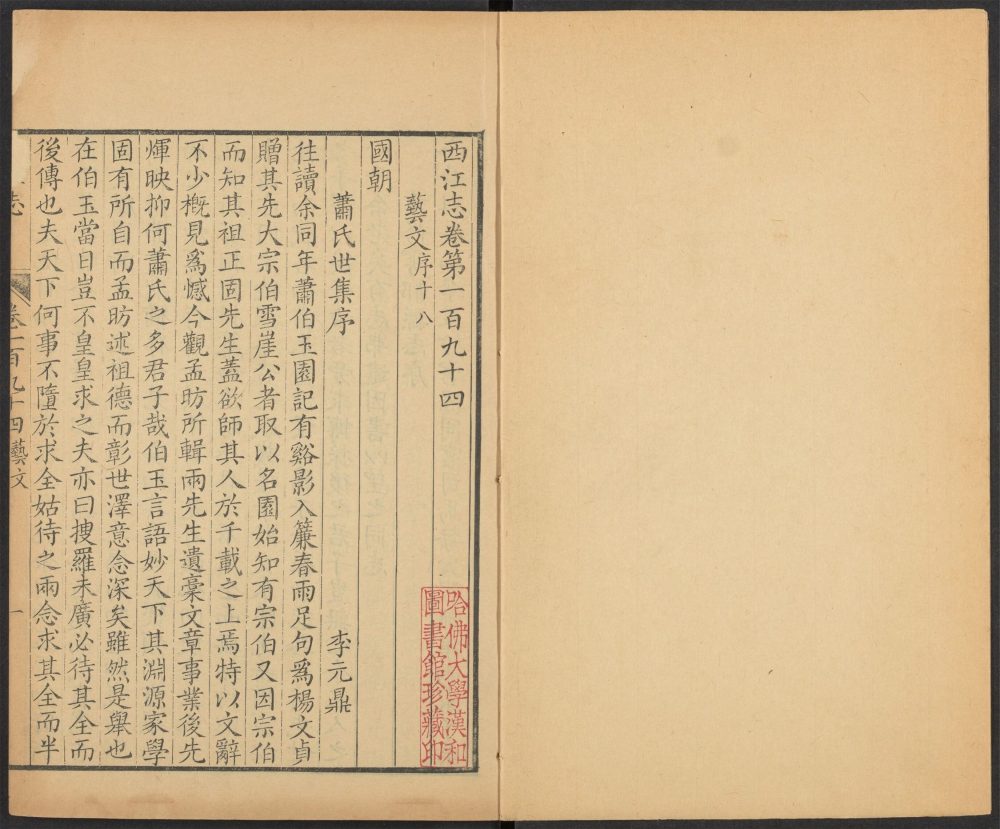 西江志卷第一百九十四
藝文序十八
國朝
蕭氏世集序 李元鼎
往讀余同年蕭伯玉園記有谿影入簾春雨足句爲楊文貞
贈其先大宗伯雪崖公者取以名園始知有宗伯又因宗伯
而知其祖正固先生蓋欲師其人於千載之上焉特以文辭
不少槪見爲憾今觀孟昉所輯兩先生遺稾文章事業後先
煇映抑何蕭氏之多君子哉伯玉言語妙天下其淵源家學
固有所自而孟昉述祖德而彰世澤意念深矣雖然是舉也
在伯玉當日豈不皇皇求之夫亦曰搜羅未廣必待其全而
後傳也夫天下何事不墮於求全姑待之兩念求其全而半
志 卷一百九十四藝文 一
哈佛大學漢和
圖書館珍藏印